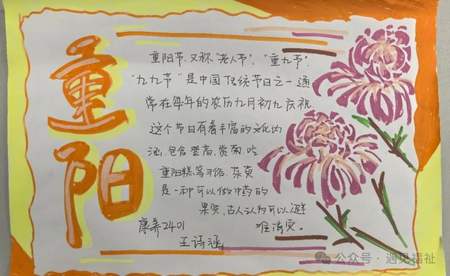 重阳
重阳节,又称"老人节","重九节",
"九九节"是中国传统节日之一通
常在每年的农历九月初九庆祝
这个节日有着丰富的文化内
涵,包含登高,赏菊,吃
重阳糕等习俗,茱萸
是一种可以做中药的
果实,古人认为可以避
难消灾。
康养2401
王诗涵
公众号·遇见福祉